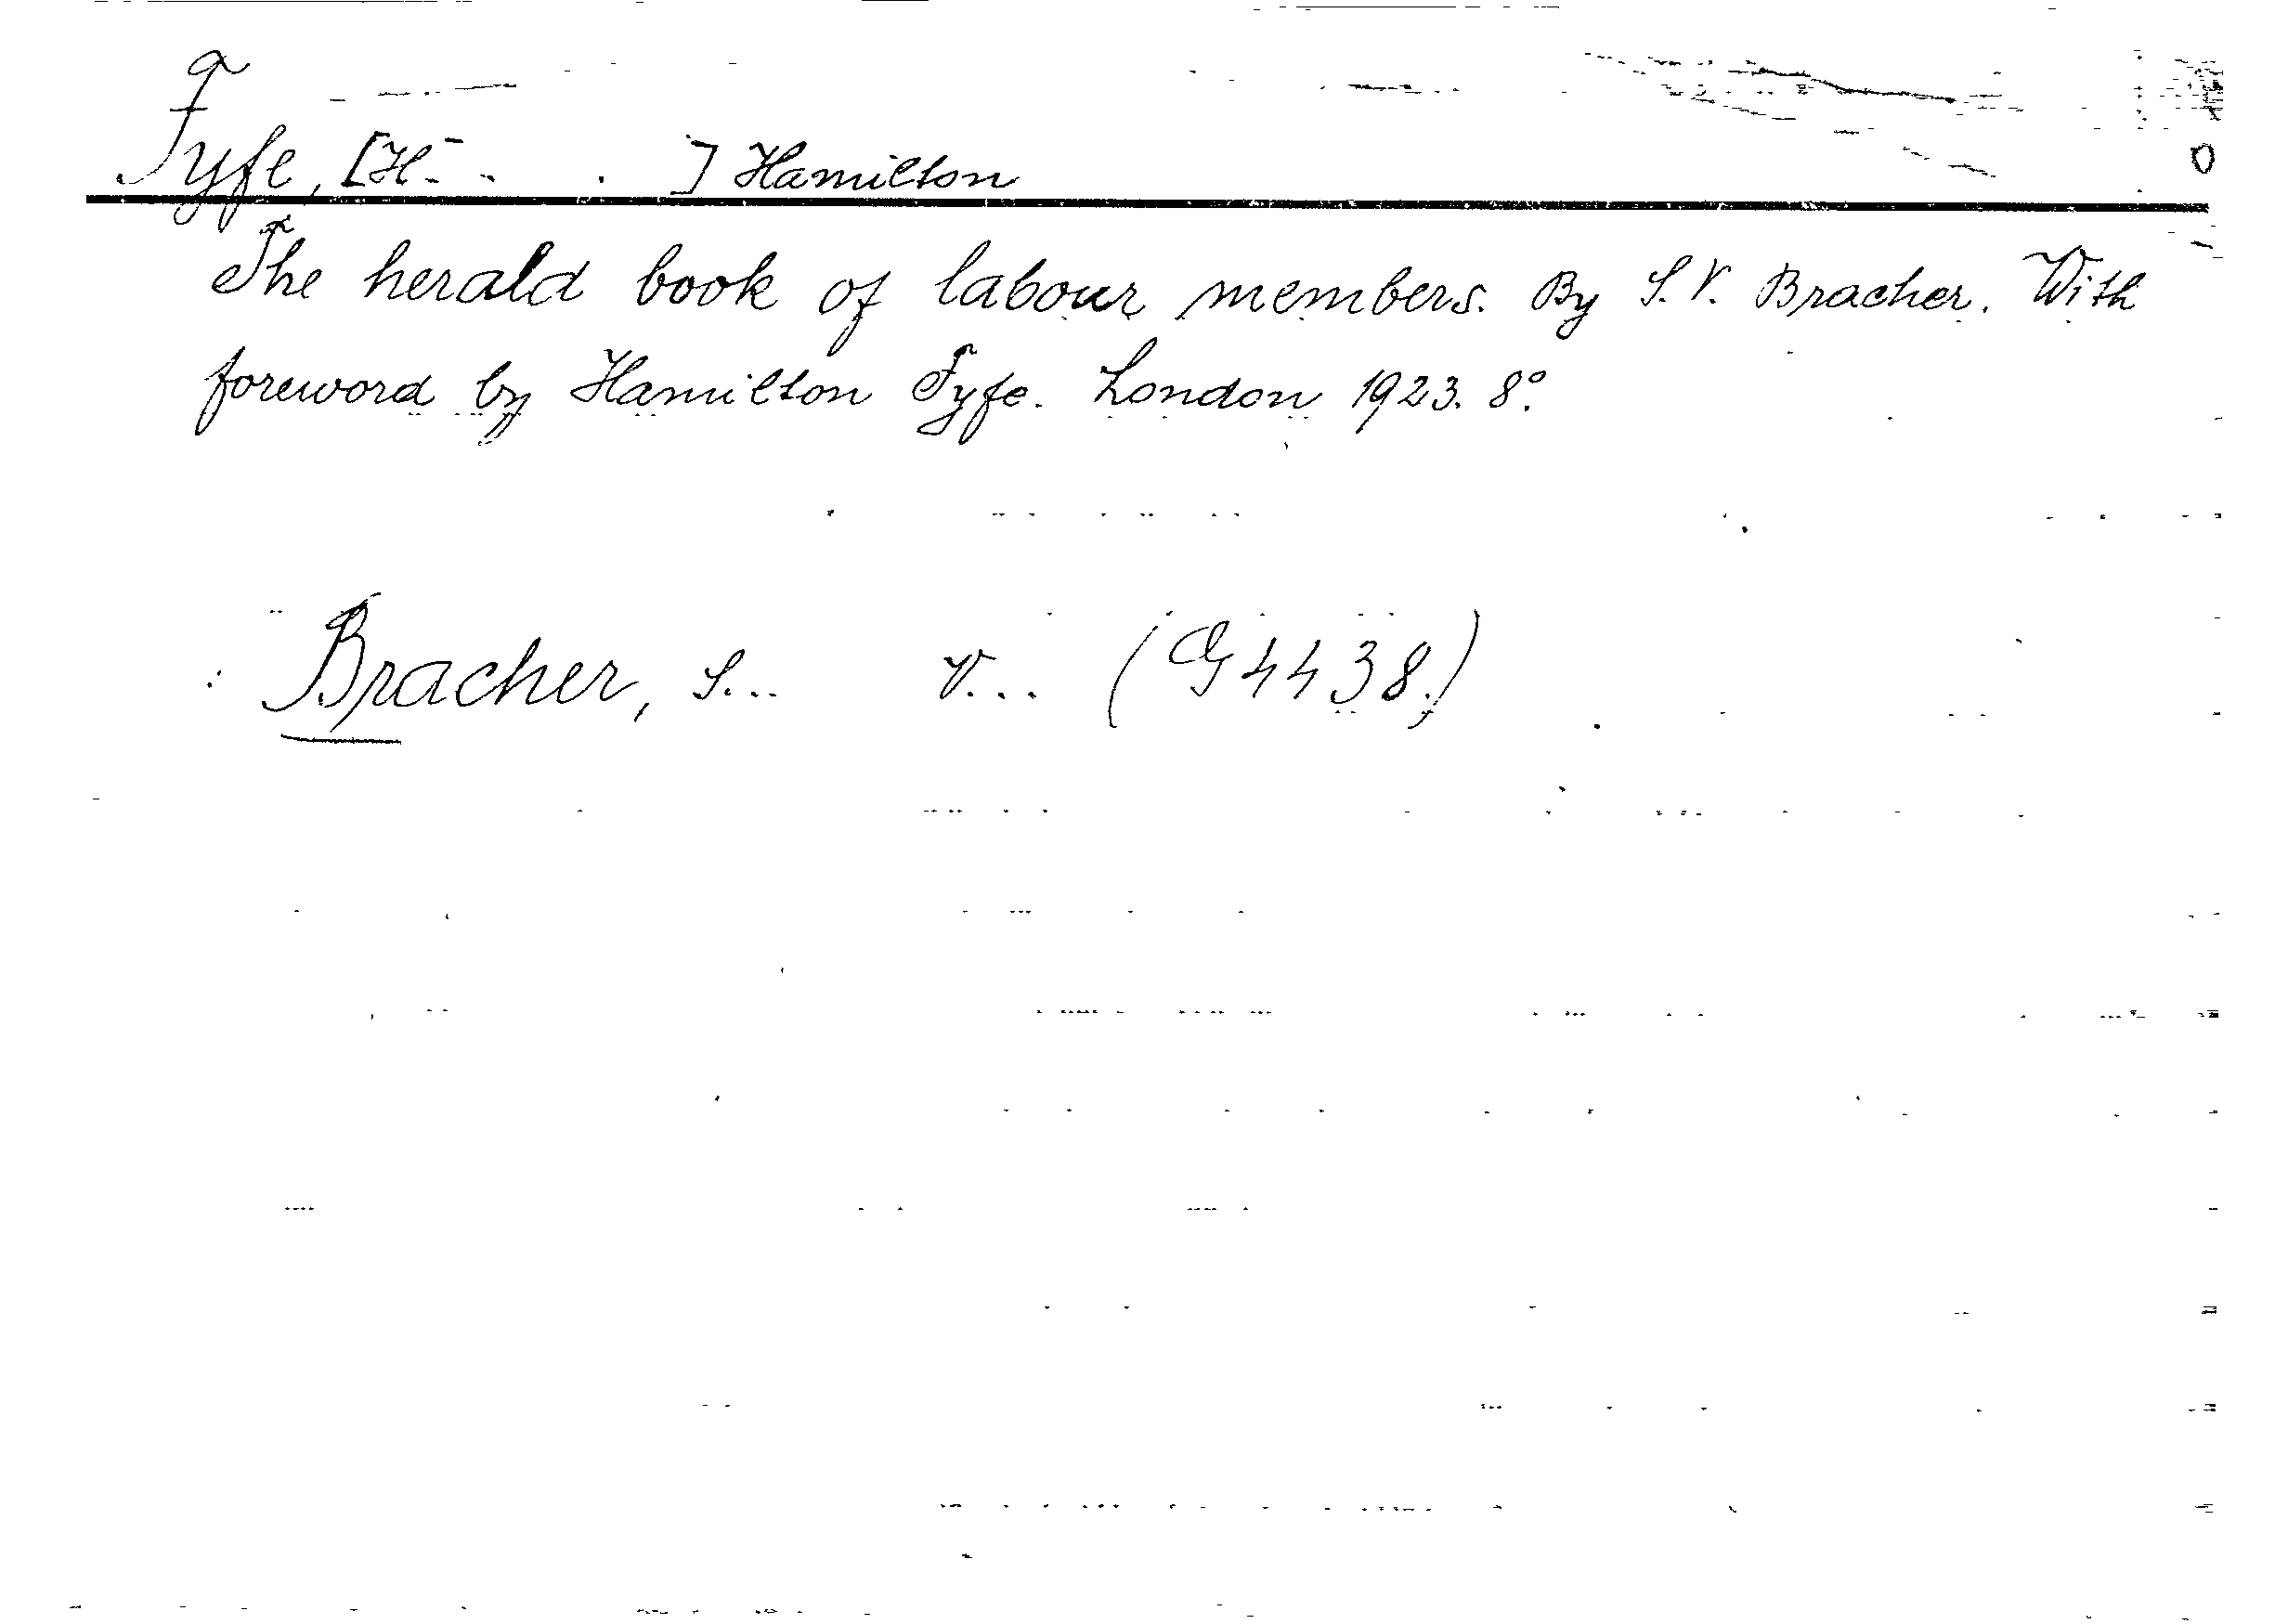 Fyfe, [H- - . ] Hamilton
The herald book of labour members. By S. V. Bracher. With
foreword by Hamilton Fyfe. London 1923. 8°.
Bracher, S... V... (G4438.)